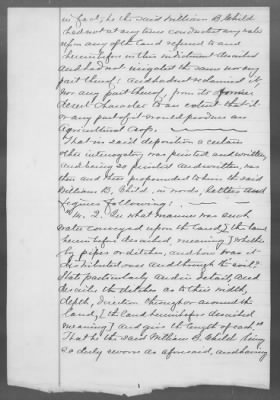 in fact, he the said William B. Child
had not at any time conducted any water
upon any of the land referred to and
hereinbefore in this indictment described
and had not irrigated the same nor any
part thereof; and had not reclaimed it,
nor any part thereof, from its former
desert character to an extent that it
or any part of it would produce an
agricultural crop.
That in said deposition a certain
other interrogatory was printed and written,
and being so printed and written, was
then and there propounded to him the said
William B. Child, in words, letters and
figures following:
"14. Q. In what manner was such
water conveyed upon the land, [the land
hereinbefore described, meaning] whether
by pipes or ditches, and how was it
distributed over and through the soil?
State particularly and in detail, and
describe the ditches as to their width,
depth, direction through or around the
land, [the land hereinbefore described
meaning] and give the length of each."
That he the said William B. Child being
so duly sworn as aforesaid, and having